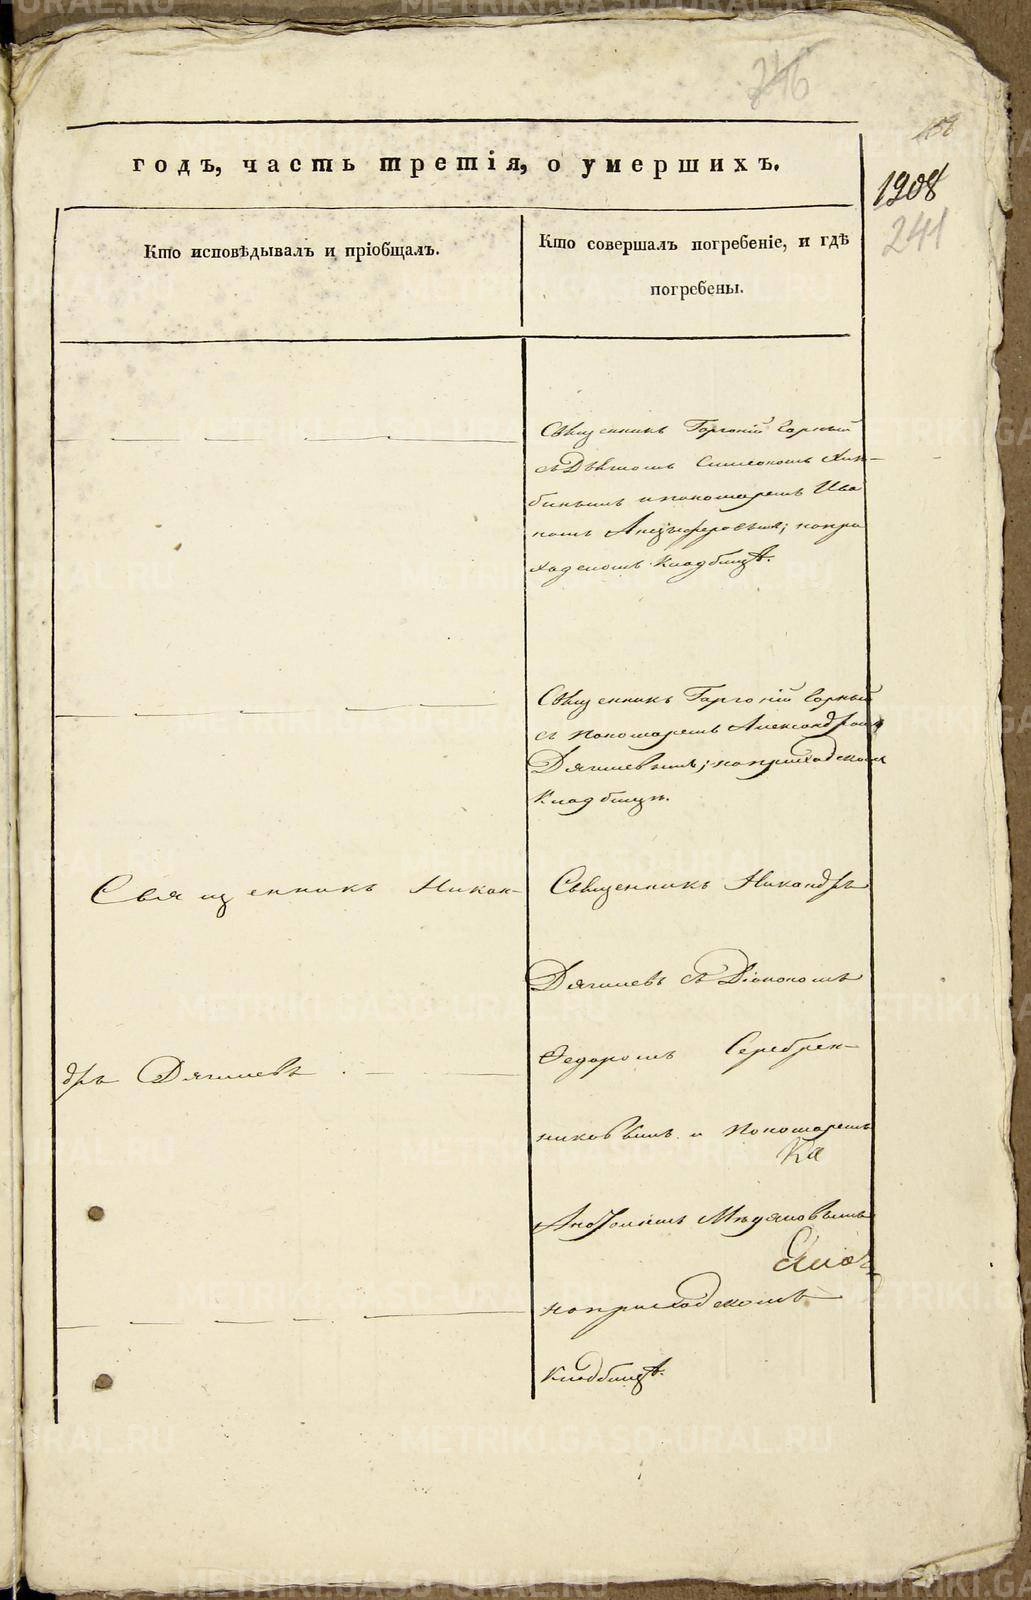 246
158
годъ, часть третія, о умершихъ.
1908
241
Кто исповѣдывалъ и пріобщалъ.
Кто совершалъ погребеніе, и гдѣ
погребены.
Священникъ Горгоній Горный
съ Діакономъ Симеономъ
и пономаремъ Ива
номъ Анцыферовымъ; на при
ходскомъ кладбищѣ.
Священникъ Горгоній Горный
съ пономаремъ Александромъ
Дягилевымъ; на приходскомъ
кладбищѣ.
Священникъ Никан-
дръ Дягилевъ
Священникъ Никандръ
Дягилевъ съ Діакономъ
Федоромъ Серебрен-
никовымъ и пономаремъ
Ка
на приходскомъ
кладбищѣ.
METRIKI.GASO-URAL.RU